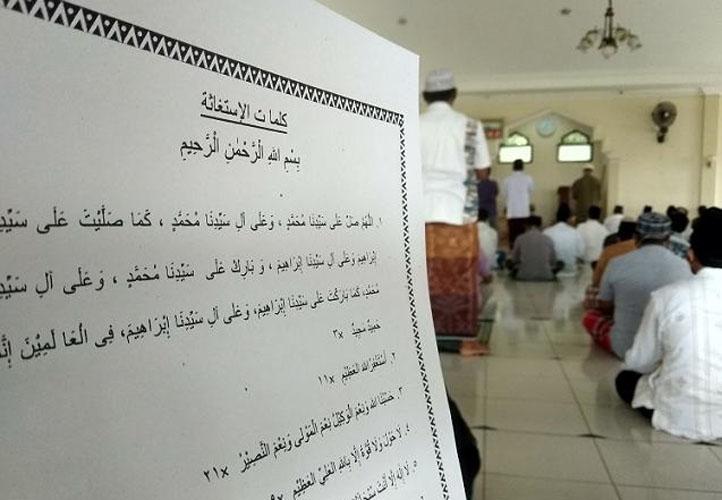 كلمات الإستغاثة
بِسْمِ اللهِ الرَّحْمٰنِ الرَّحِيمِ
١. اللهُمَّ صَلِّ عَلَى سَيِّدِنَا مُحَمَّدٍ ، وَعَلَى آلِ سَيِّدِنَا مُحَمَّدٍ ، كَمَا صَلَّيْتَ عَلَى
إِبْرَاهِيمَ وَعَلَى آلِ سَيِّدِنَا إِبْرَاهِيمَ ، وَ بَارِكْ عَلَى سَيِّدِنَا مُحَمَّدٍ ، وَعَلَى آلِ
مُحَمَّدٍ، كَمَا بَارَكْتَ عَلَى سَيِّدِنَا إِبْرَاهِيمَ، وَعَلَى آلِ سَيِّدِنَا إِبْرَاهِيمَ، فِى الْعَا لَمِيْنَ
حَمِيْدٌ مَجِيْدٌ ٣×
٢. أَسْتَغْفِرُ اللهَ الْعَظِيْمَ ١١×
٣. حَسْبُنَا اللهُ وَنِعْمَ الْوَكِيْلُ نِعْمَ الْمَوْلَى وَنِعْمَ النَّصِيْرُ ٢١×
٤. لَا حَوْلَ وَلَا قُوَّةَ إِلَّا بِاللهِ الْعَلِيِّ الْعَظِيْمِ
٥. لَا إِلٰهَ إِلَّا أَنْتَ